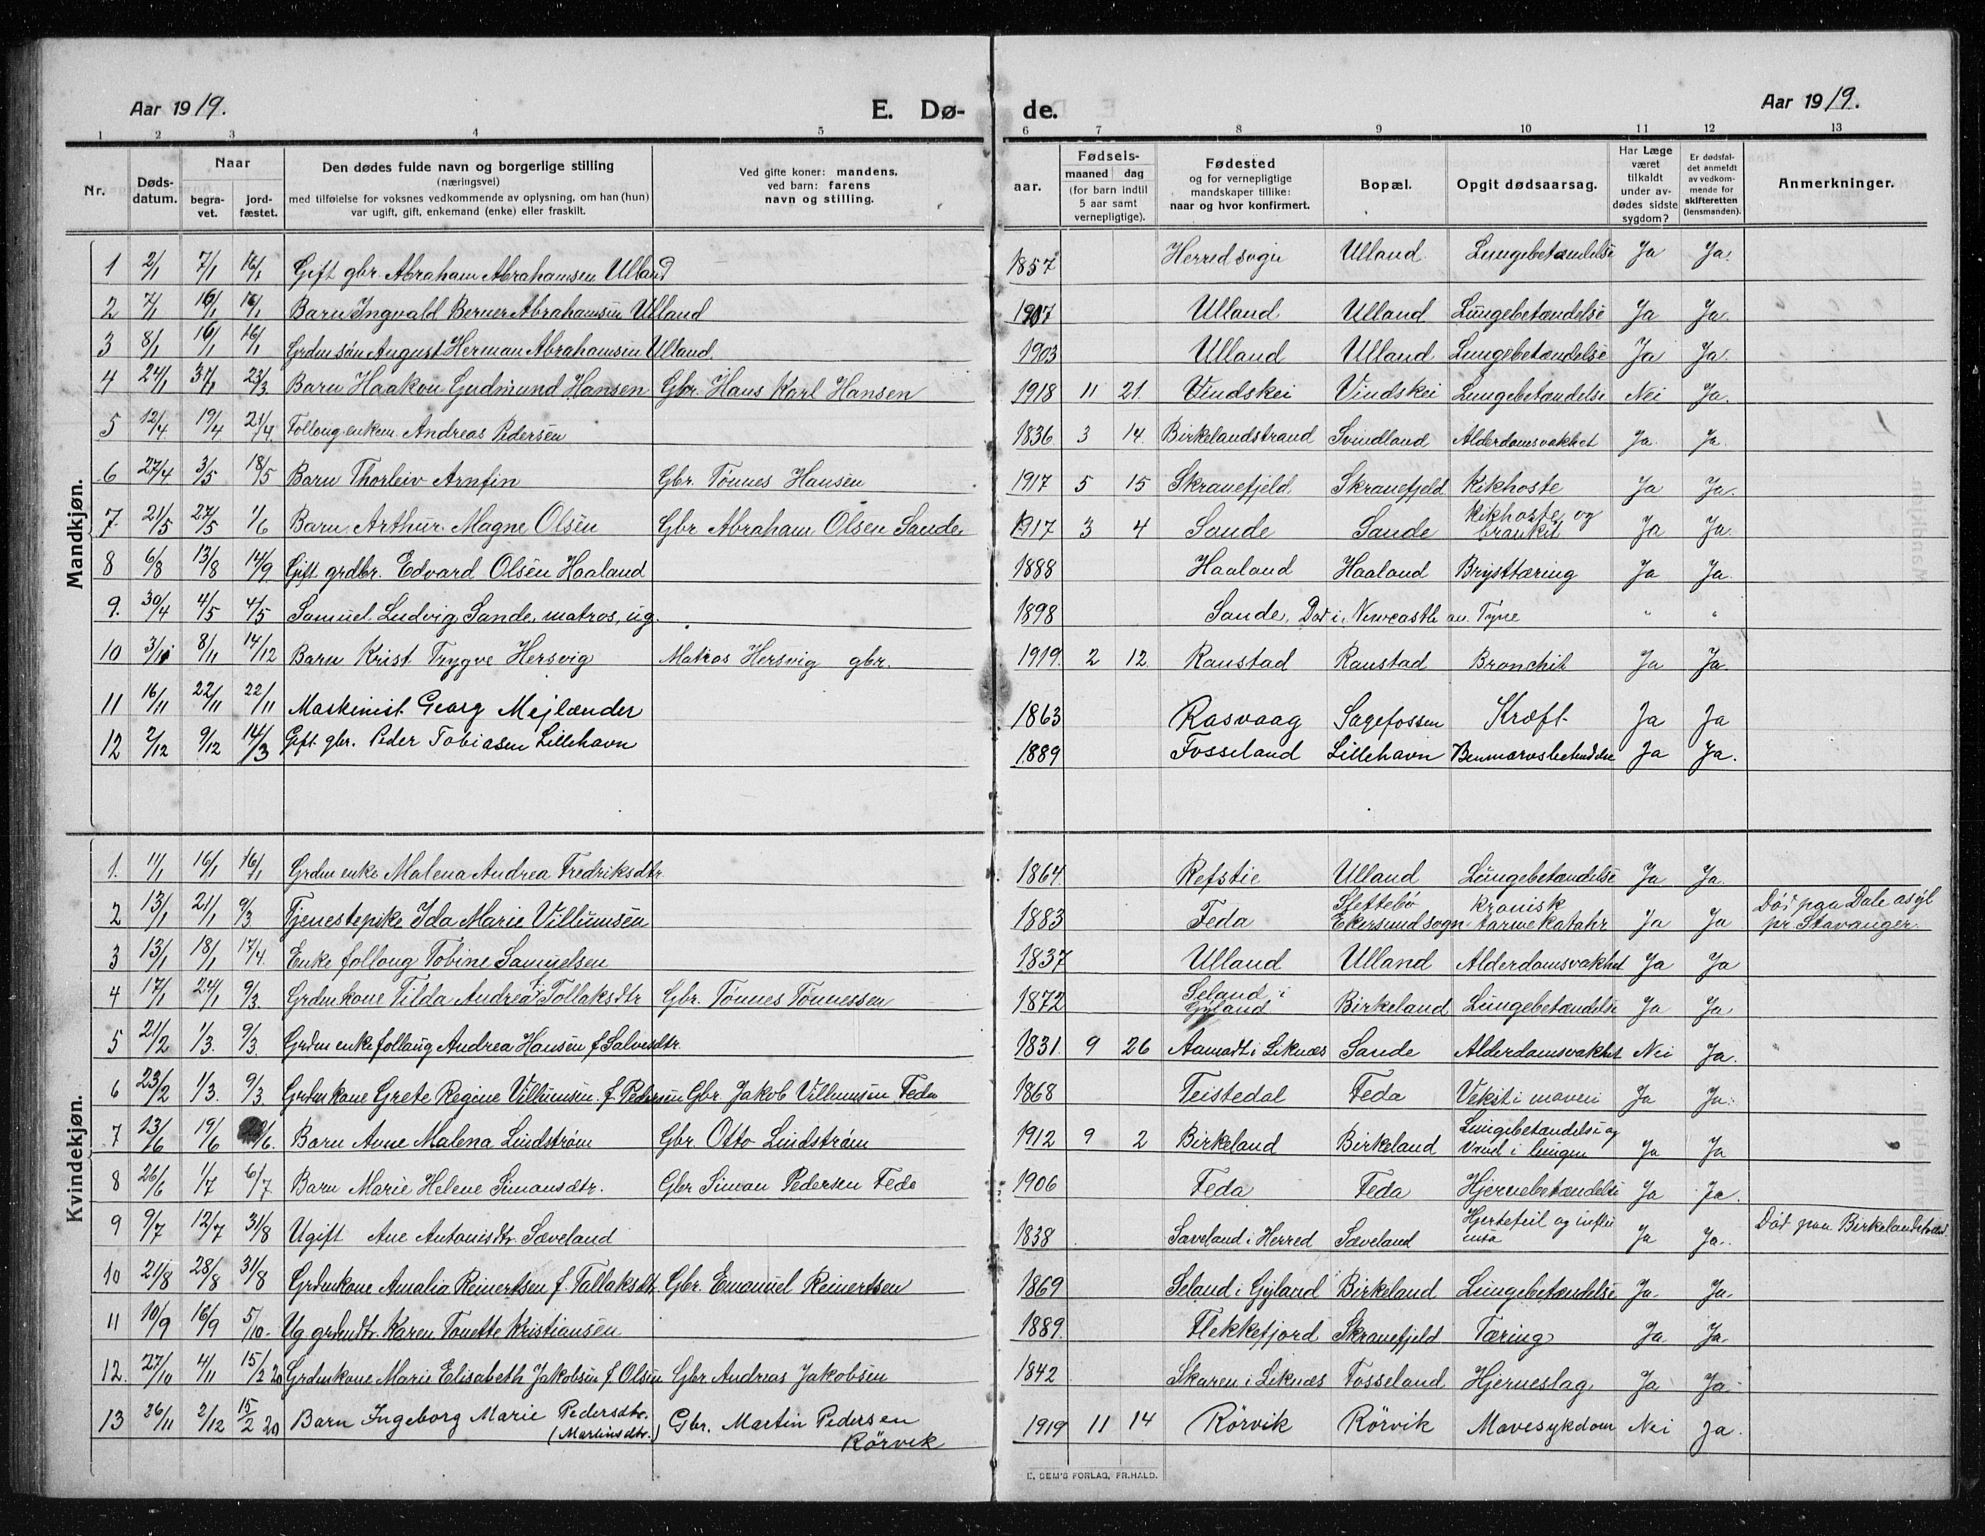 Aar 1919. E. Dø- de. Aar 1919.
1 2 3 4 5 6 7 8 9 10 11 12 13
Nr. Døds-datum. Naar begra-vet. jord-fæstet. Den dødes fulde navn og borgerlige stilling (næringsvei) med tilføielse for voksnes vedkommende av oplysning, om han (hun) var ugift, gift, enkemand (enke) eller fraskilt. Ved gifte koner: mandens, ved barn: farens navn og stilling. aar. Fødsels- maaned dag (for barn indtil 5 aar samt vernepligtige). Fødested og for vernepligtige mandskaper tillike: naar og hvor konfirmert. Bopæl. Opgit dødsaarsag. Har Læge været tilkaldt under av-dødes sidste sygdom? Er dødsfal-det anmeldt av vedkom-mende for skifteretten (lensmanden). Anmerkninger.
Mandkjøn.
1 2/1 7/1 16/1 Gift gbr. Abraham Abrahamsen Ulland 1857 Herred sogn Ulland Lungebetændelse Ja Ja.
2 7/1 16/1 16/1 Barn Ingvald Berner Abrahamsen Ulland 1907 Ulland Ulland Lungebetændelse Ja Ja.
3 8/1 16/1 16/1 Grdm søn August Herman Abrahamsen Ulland. 1903 Ulland Ulland Lungebetændelse Ja Ja.
4 24/1 31/1 23/3 Barn Haakon Gudmund Hansen Gbr. Hans Karl Hansen 1918 11 21 Vindskei Vindskei Lungebetændelse Nei Ja.
5 12/4 19/4 21/4 Follong enkem. Andreas Pedersen 1836 3 14 Birkelandstrand Svindland Alderdomsvakhet Ja. Ja.
6 27/4 3/5 18/5 Barn Thorleiv Arnfin Gbr. Tønnes Hansen 1917 5 15 Skranefjeld Skranefjeld Kikhoste Ja Ja.
7. 21/5 27/5 1/6 Barn Arthur Magne Olsen Gbr Abraham Olsen Sande 1917 3 4 Sande Sande Kikhoste og bronkit Ja Ja.
8 6/8 13/8 14/9 Gift grdbr. Edvard Olsen Haaland 1888 Haaland Haaland Brysttæring Ja Ja.
9. 30/4 4/5 4/5 Samuel Ludvig Sande, matros, ug. 1898 Sande, Død i Newcastle on Tyne " "
10 3/11 8/11 14/12 Barn Krist Trygve Hersvig Matros Hersvig gbr. 1919. 2 12 Ranstad Ranstad Bronchit Ja Ja.
11 16/11 22/11 22/11 Maskinist Georg Mejlænder 1863 Rasvaag Sagefossen Kræft Ja Ja
12 2/12 9/12 14/3 Gift gbr. Peder Tobiasen Lillehavn 1889 Fosseland Lillehavn Benmarvsbetendelse Ja Ja.
Kvindekjøn.
1. 11/1 16/1 16/1 Grdm enke Malena Andrea Fredriksdtr. 1864 Refstie Ulland Lungebetændelse Ja Ja.
2 13/1 21/1 9/3 Tjenestepike Ida Marie Villumsen 1883 Feda Slettebø Ekersund sogn kronisk tarmekatahr Ja Ja Død paa Dale asyl pr Stavanger.
3 13/1 18/1 17/4. Enke follong Tobine Samuelsen 1837 Ulland Ulland Alderdomsvakhet Ja Ja
4 17/1 24/1 9/3. Grdm kone Tilda Andrea f. Tollaksdtr Gbr. Tønnes Tønnessen 1872 Seland i Gyland Birkeland Lungebetændelse Ja Ja.
5 21/2 1/3. 9/3. Grdm enke follaug Andrea Hansen f Salvesdtr. 1831. 9 26 Aamodt i Liknæs Sande Alderdomsvakhet Nei Ja.
6 23/2 1/3. 9/3 Grdm kone Grete Regine Villumsen f Pedersen Gbr. Jakob Villumsen Feda 1868 Teistedal Feda Vekst i maven Ja Ja.
7 13/6 19/6 /6. Barn Anne Malena Lindstrøm Gbr. Otto Lindstrøm 1912 9 2 Birkeland Birkeland Lungebetændelse og Vand i lungen Ja Ja
8 26/6 1/7 6/7 Barn Marie Helene Simonsdtr. Gbr Simon Pedersen Feda 1906 Feda Feda Hjernebetændelse Ja Ja.
9 9/7 12/7 31/8 Ugift Ane Antonisdtr. Sæveland 1838 Saveland i Herred Sæveland Hjertefeil og influensa Ja Ja. Død paa Birkelandstrand.
10 21/8 28/8 31/8 Grdmkone Amalia Reinertsen f Tallaksdtr. Gbr. Emanuel Reinertsen 1869 Seland i Gyland Birkeland Lungebetændelse Ja. Ja.
11 10/9 16/9 5/10. Ug grdmdtr. Karen Tonette Kristiansen 1889. Flekkefjord Skranefjeld Tæring Ja. Ja.
12. 27/10 4/11 15/2 20 Grdmkone Marie Elisabeth Jakobsen f Olsen Gbr Andreas Jakobsen 1842 Skaren i Liknæs Fosseland Hjerneslag Ja Ja.
13 26/11 2/12 15/2 20 Barn Ingeborg Marie Pedersdtr. (Martinsdtr.) Gbr. Martin Pedersen Rörvik 1919 11 14 Rörvik Rörvik Mavesykdom Nei Ja.
E. SEM'S FORLAG, FR.HALD.